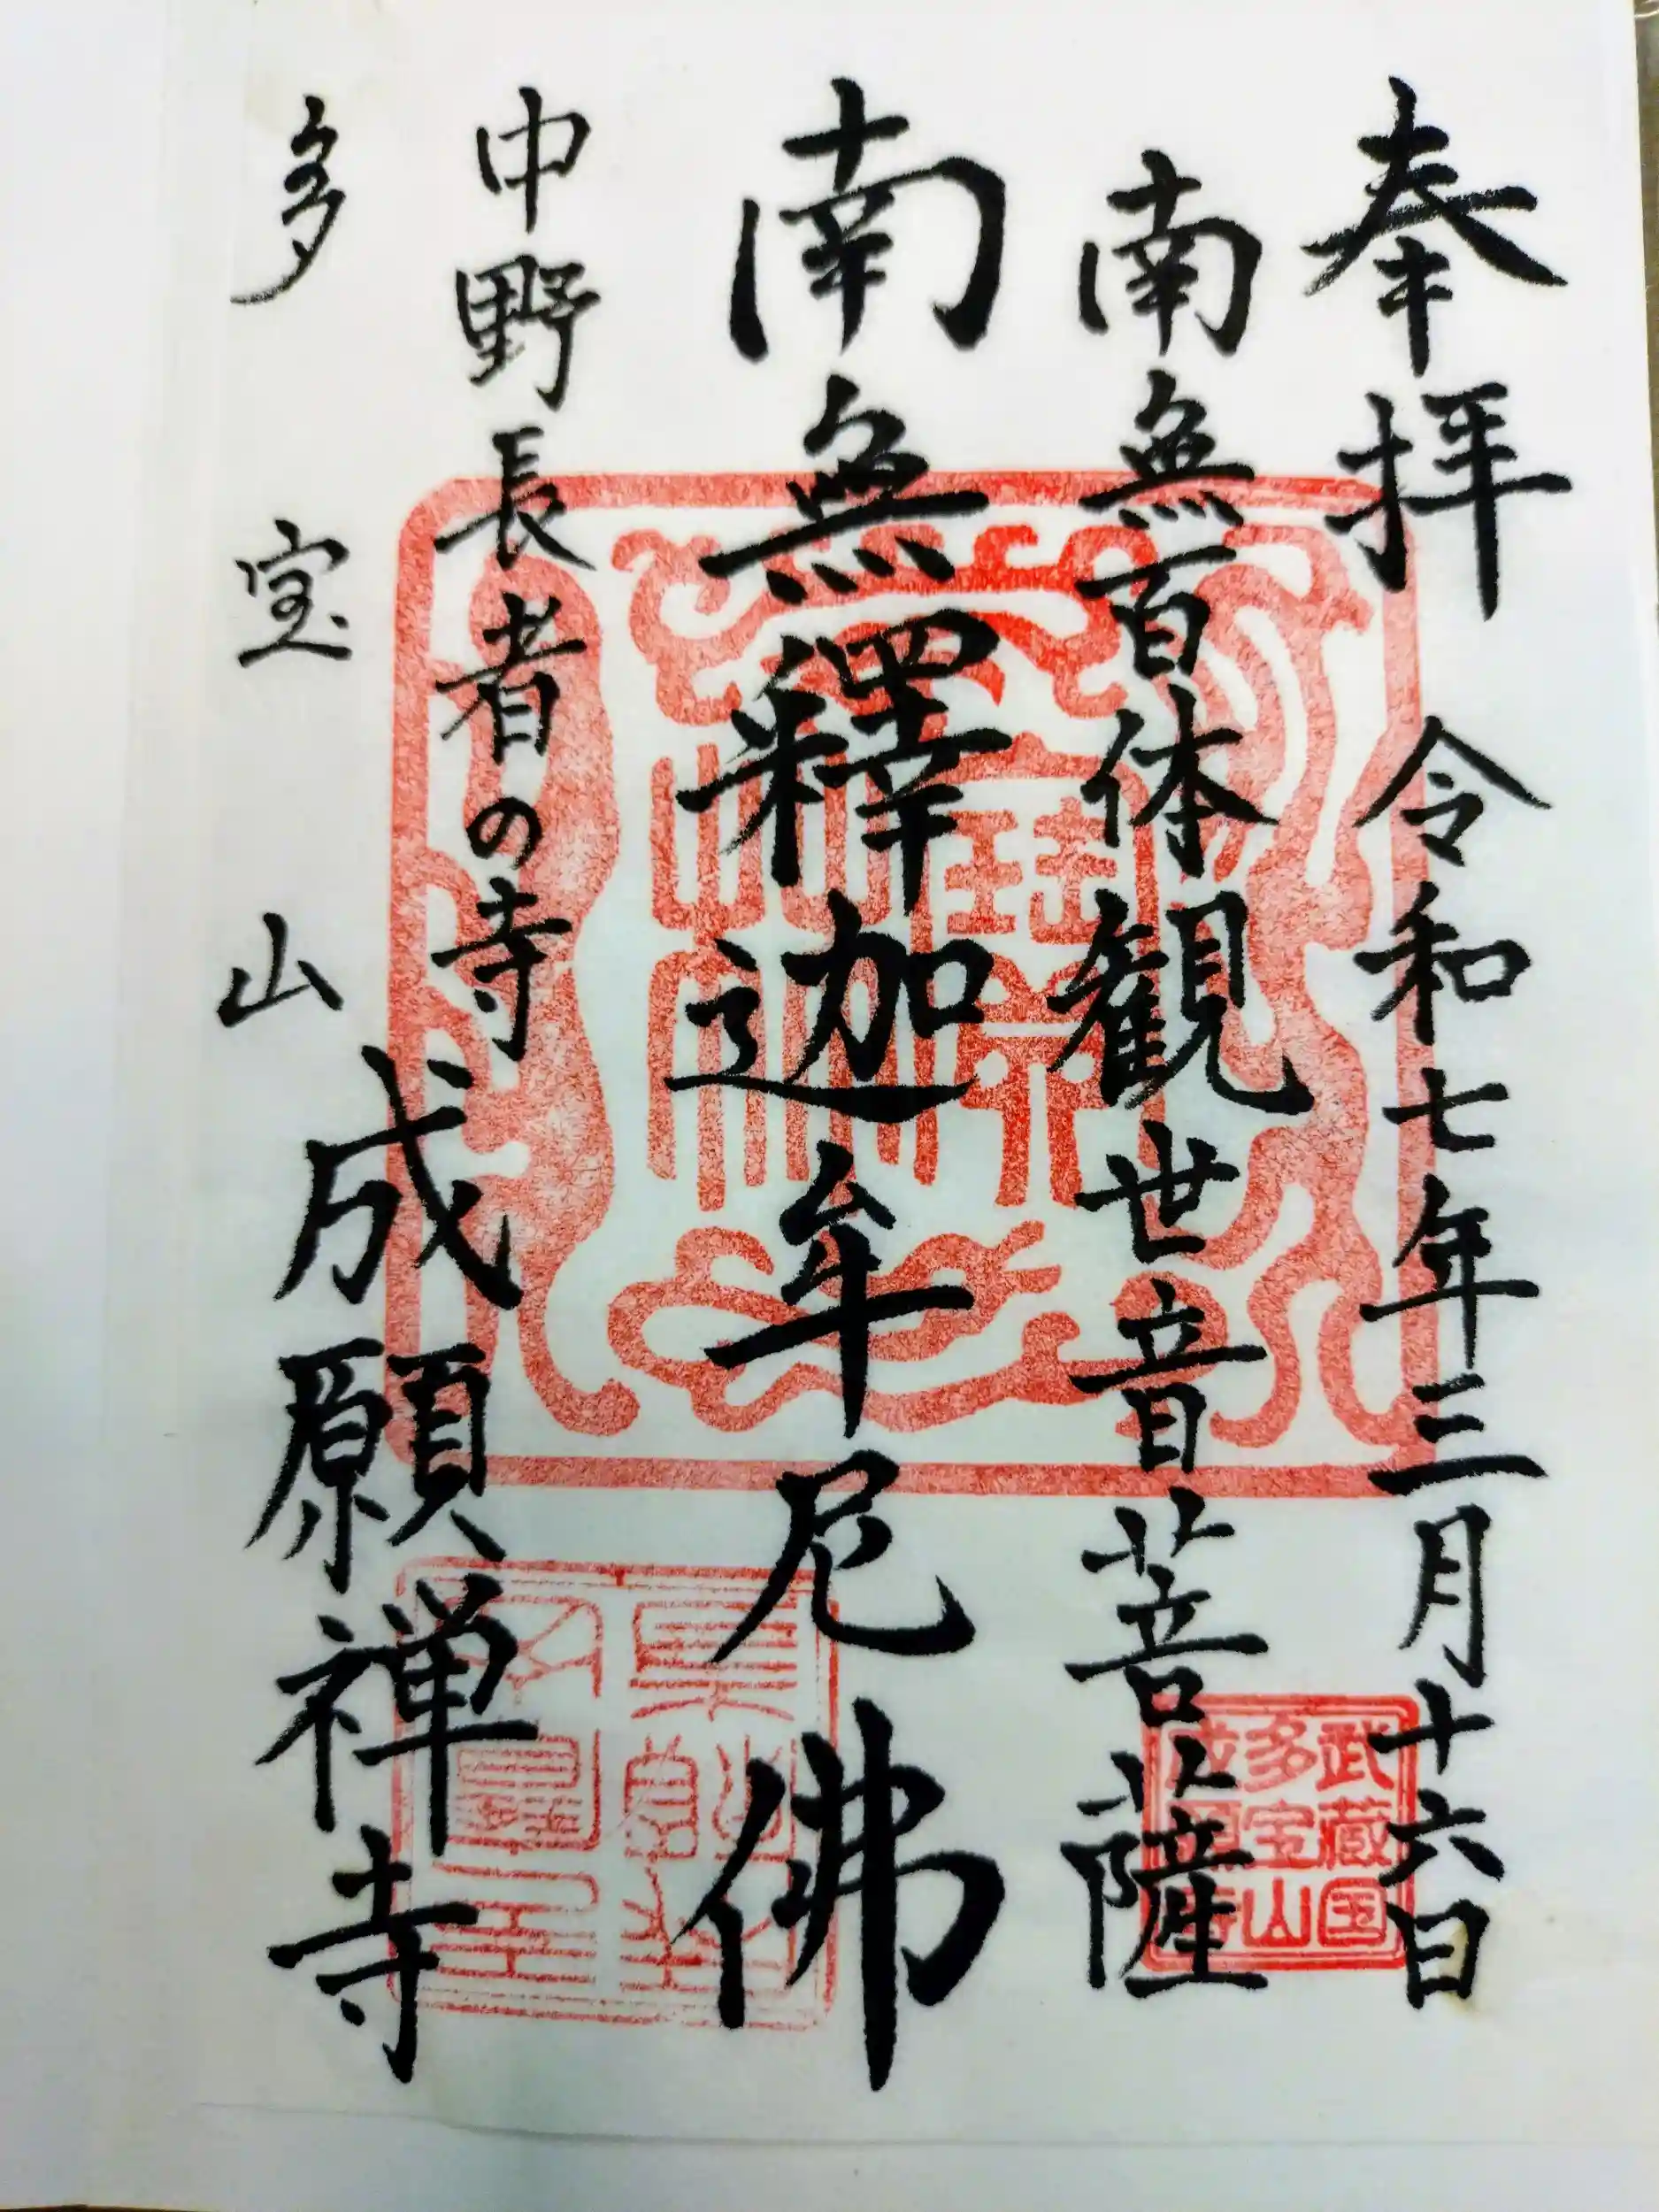 奉拝 令和七年三月十六日
南無百体観世音菩薩
南無釋迦牟尼佛
中野長者の寺
多宝山
成願禅寺
武蔵国
多宝山
成願寺